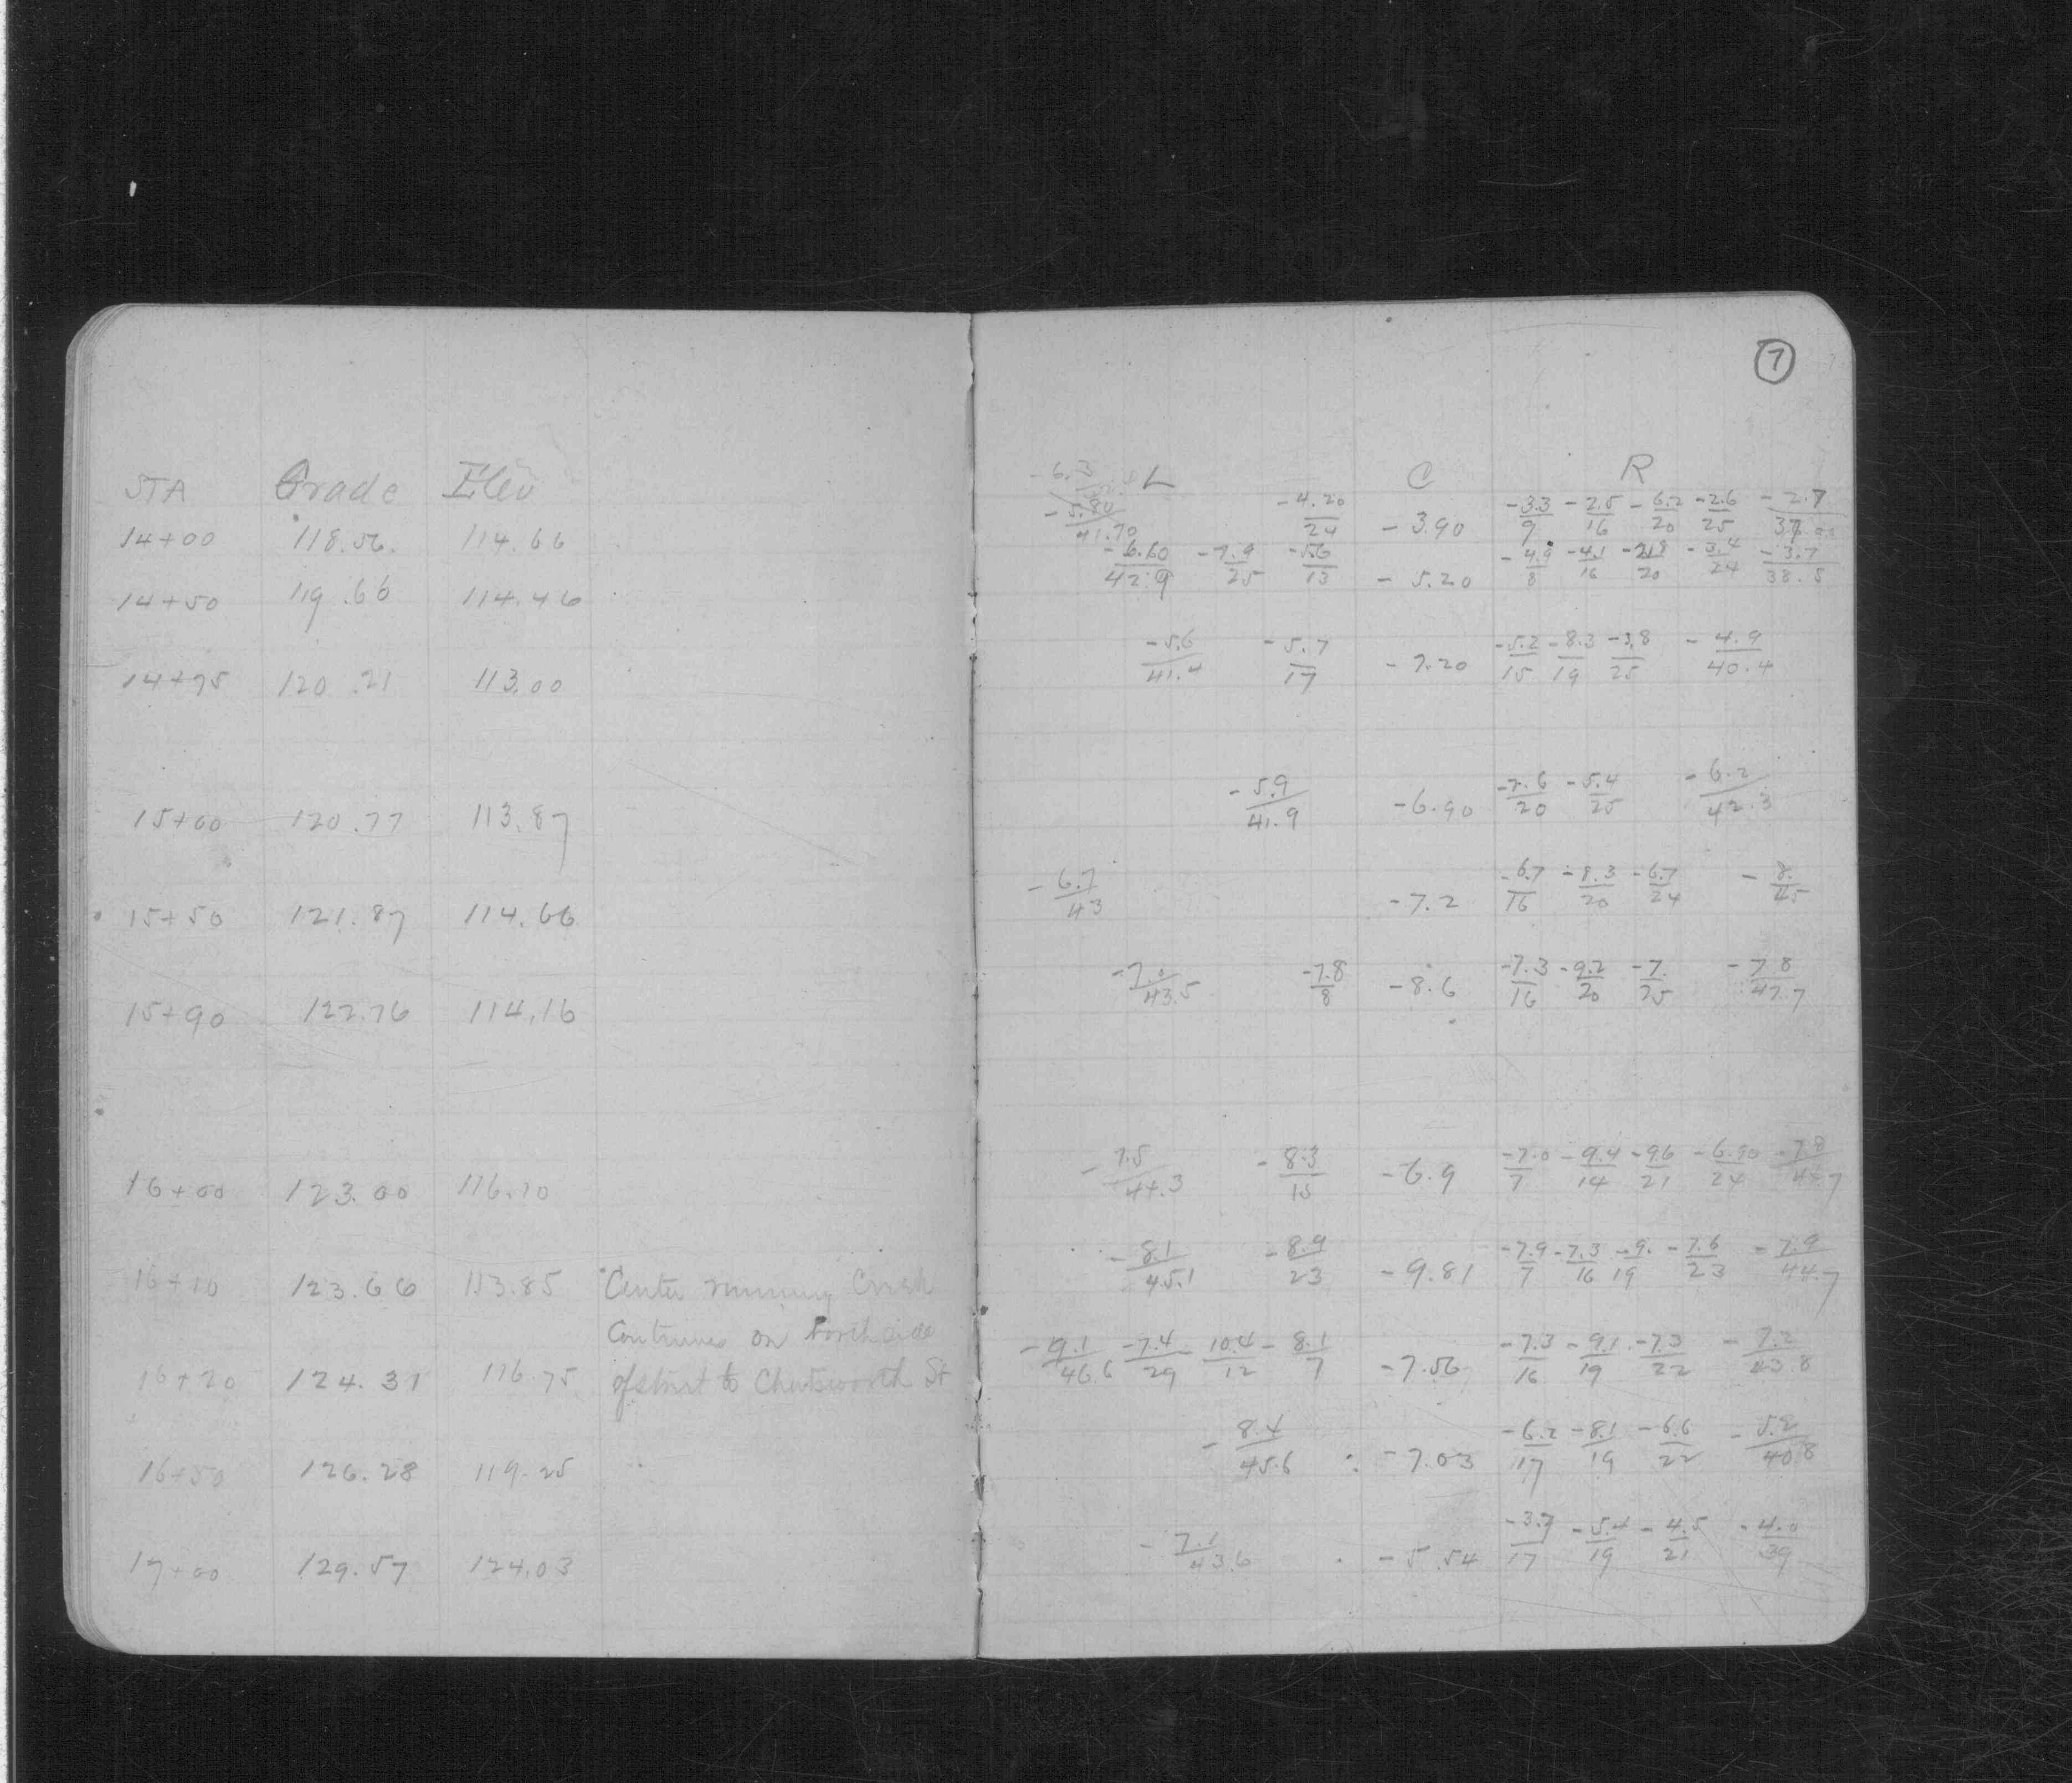 7
STA Grade Elev
14+00 118.56. 114.66
14+50 119.66 114.46
14+75 120.21 113.00
15+00 120.77 113.87
15+50 121.87 114.66
15+90 122.76 114.16
16+00 123.00 116.10
16+10 123.66 113.85 Center running Creek
Continues on North side
16+20 124.31 116.75 of street to Chatsworth St
16+50 126.28 119.25
17+00 129.57 124.03
L C R
-6.3
-5.80/41.70 -4.20/24 -3.90 -3.3/9 -2.5/16 -6.2/20 -2.6/25 -2.7/37.00
-6.60/42.9 -7.9/25 -5.6/13 -5.20 -4.9/8 -4.1/16 /20 -3.4/24 -3.7/38.5
-5.6/41.4 -5.7/17 -7.20 -5.2/15 -8.3/19 -3.8/25 -4.9/40.4
-5.9/41.9 -6.90 -7.6/20 -5.4/25 -6.2/42.3
-6.7/43 -7.2 -6.7/16 -8.3/20 -6.7/24 -8./45
-7.0/43.5 -7.8/8 -8.6 -7.3/16 -9.2/20 -7./25 -7.8/47.7
-7.5/44.3 -8.3/15 -6.9 -7.0/7 -9.4/14 -9.6/21 -6.90/24 -7.8/44.7
-8.1/45.1 -8.9/23 -9.81 -7.9/7 -7.3/16 -9./19 -7.6/23 -7.9/44.7
-9.1/46.6 -7.4/29 -10.4/12 -8.1/7 -7.56 -7.3/16 -9.1/19 -7.3/22 -7.2/43.8
-8.4/45.6 -7.03 -6.2/17 -8.1/19 -6.6/22 -5.2/40.8
-7.1/43.6 -5.54 -3.7/17 -5.4/19 -4.5/21 -4.0/39